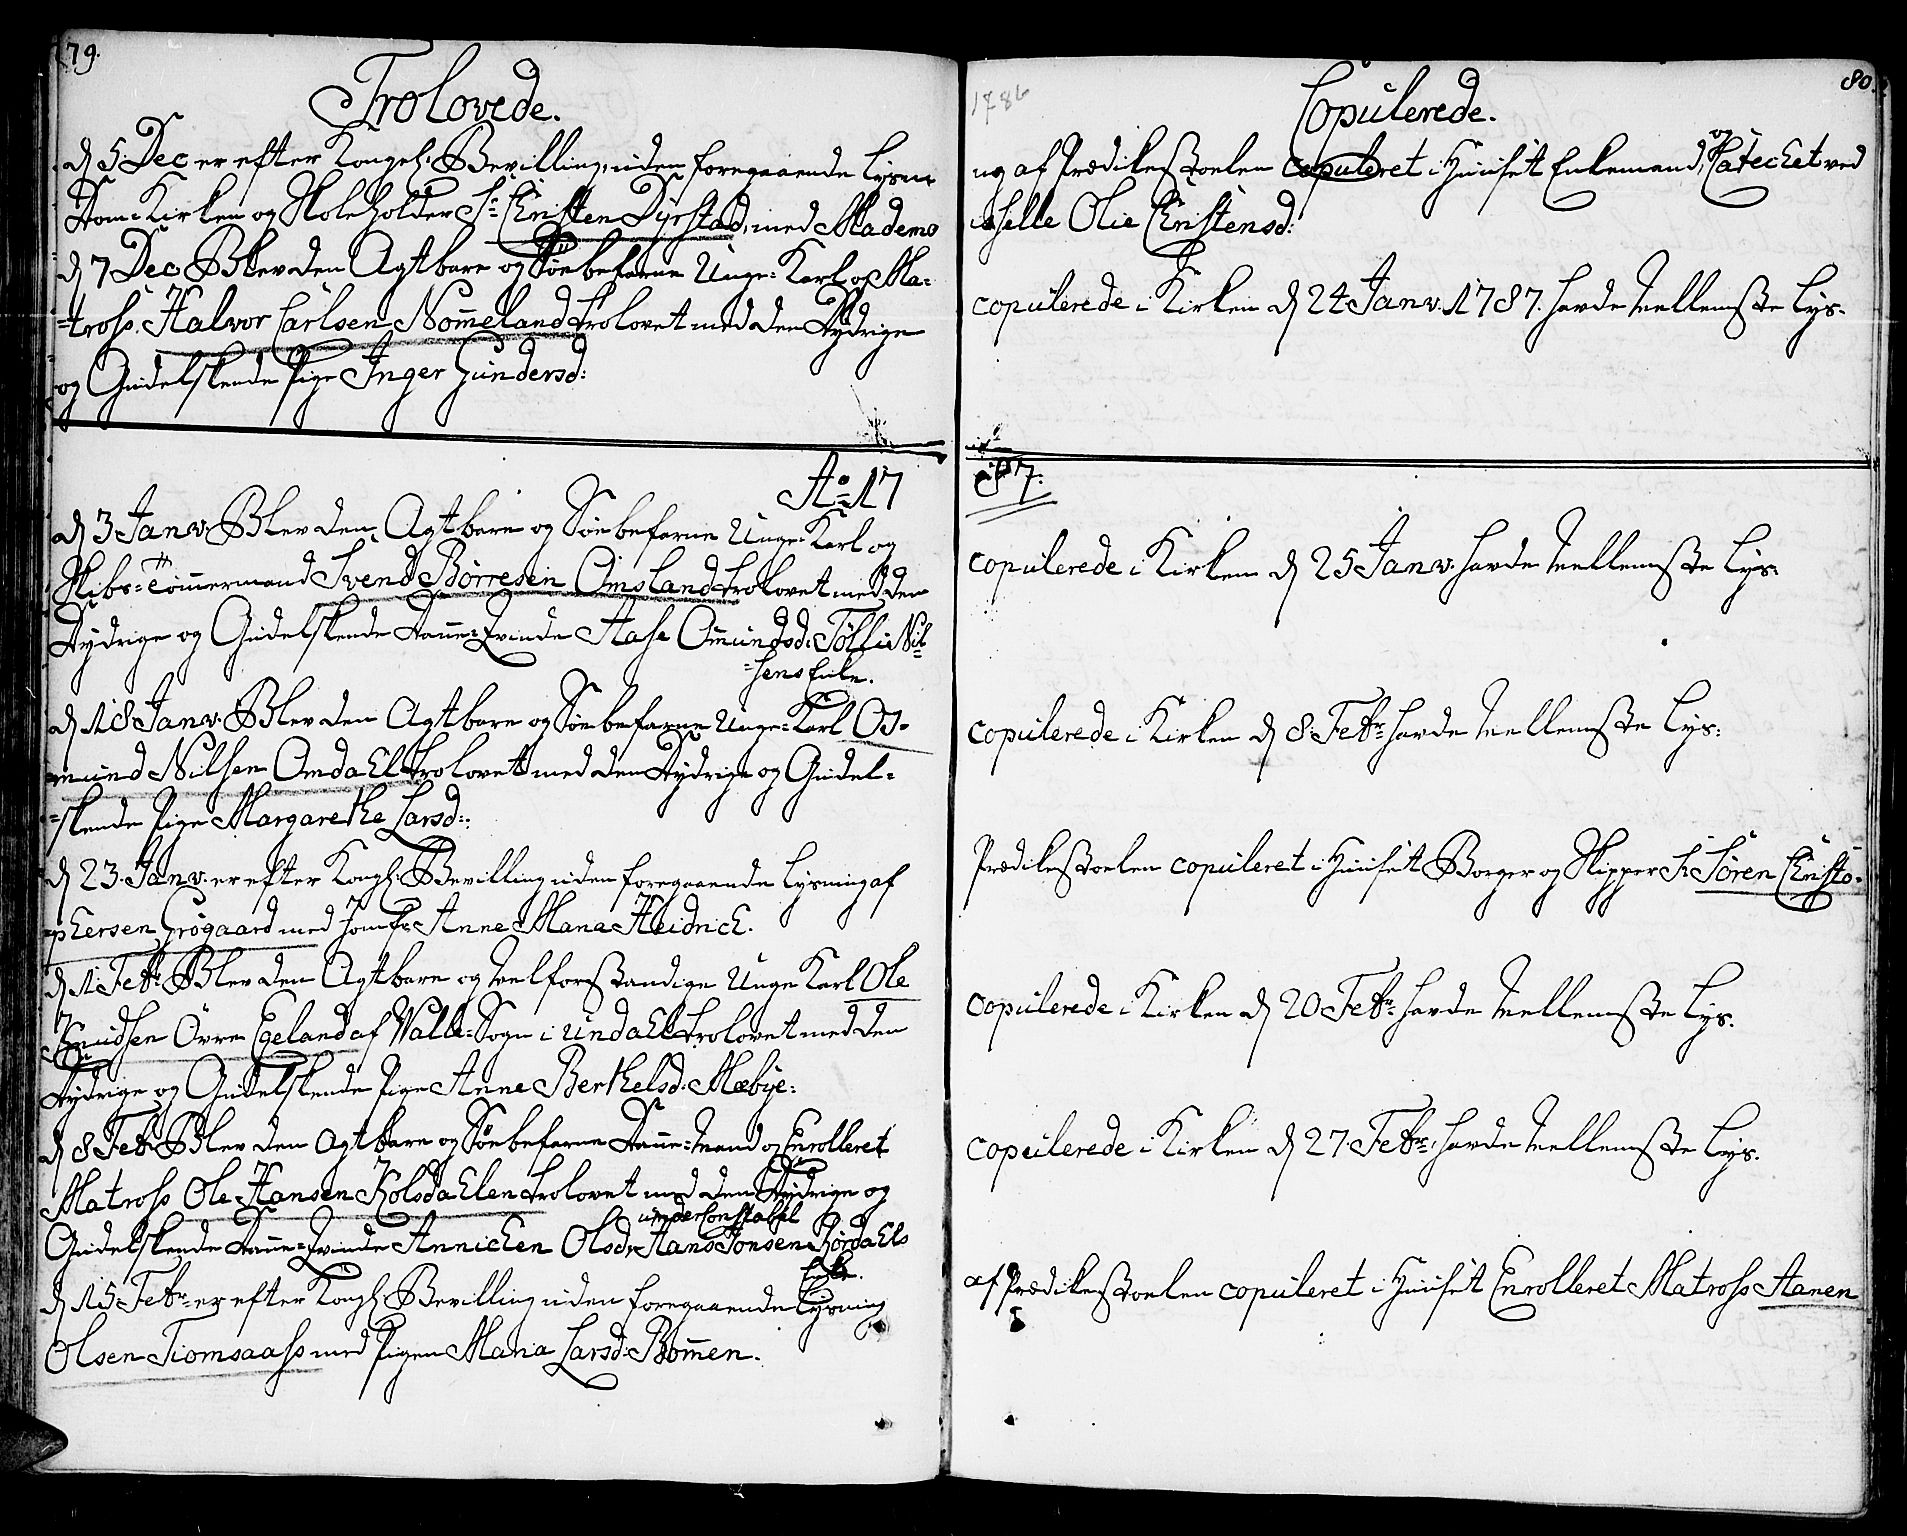 79.
Trolovede.
d 5 Dec er efter Kongel: Bevilling, uden foregaaende Lysni
Dom-Kirken og Skoleholder Sr: Christen Dyrstad, med Madem
d 7 Dec Blev den Agtbare og Søebefarne Unge-Karl og Ma-
-tross. Halvor Carlsen Nom̄eland trolovet med den Dydrige
og Gudelskende Pige Inger Gundersd:
Ao 17
d 3 Janv: Blev den Agtbare og Søebefarne Unge-Karl og
Skibs-Tøm̄ermand Svend Børresen Omsland trolovet med den
Dydrige og Gudelskende Dan̄e-Qvinde Aase Om̄undsd: Tølli Nil-
-sens Enke.
d 18 Janv: Blev den Agtbare og Søebefarne Unge-Karl Os-
mund Nilsen Omdahl trolovet med den Dydrige og Gudel-
-skende Pige Margarethe Larsd:
d 23. Janv: er efter Kongl: Bevilling uden foregaaende Lysning af
-phersen Grøgaard med Jomfr: Anne Maria Heidrich.
d 1 Febr: Blev den Agtbare og Velforstandige Unge Karl Ole
Knudsen Øvre Egeland af Valle-Sogn i Undahl trolovet med den
Dydrige og Gudelskende Pige Anne Berthelsd: Mæbye:
d 8 Febr: Blev den Agtbare og Søebefarne Dan̄e-Mand og Enrolleret
Matross Ole Hansen Kolsdahlen trolovet med den Dydrige og
underConstabel
Gudelskende Dan̄e-Qvinde Annichen Olsdr. Hans Jonsen Kørdahls
Enke.
d 15 Febr: er efter Kongl: Bevilling uden foregaaende Lysning
Olsen Tiomsaass med Pigen Maria Larsd: Bom̄en.
80.
1786
Copulerede.
ng af Prædikestoelen copuleret i Huuset Enkemand, og Catechet ved
iselle Olie Christensd:
copulerede i Kirken d 24 Janv. 1787. havde trellemste Lys.
87.
copulerede i Kirken d 25 Janv: havde trellemste Lys:
copulerede i Kirken d 8. Febr: havde trellemste Lys:
Prædikestoelen copuleret i Huuset Borger og Skipper Sr. Søren Christo-
copulerede i Kirken d 20 Febr: havde trellemste Lys.
copulerede i Kirken d 27. Febr: havde trellemste Lys.
af Prædikestoelen copuleret i Huuset Enrolleret Matross Aanen